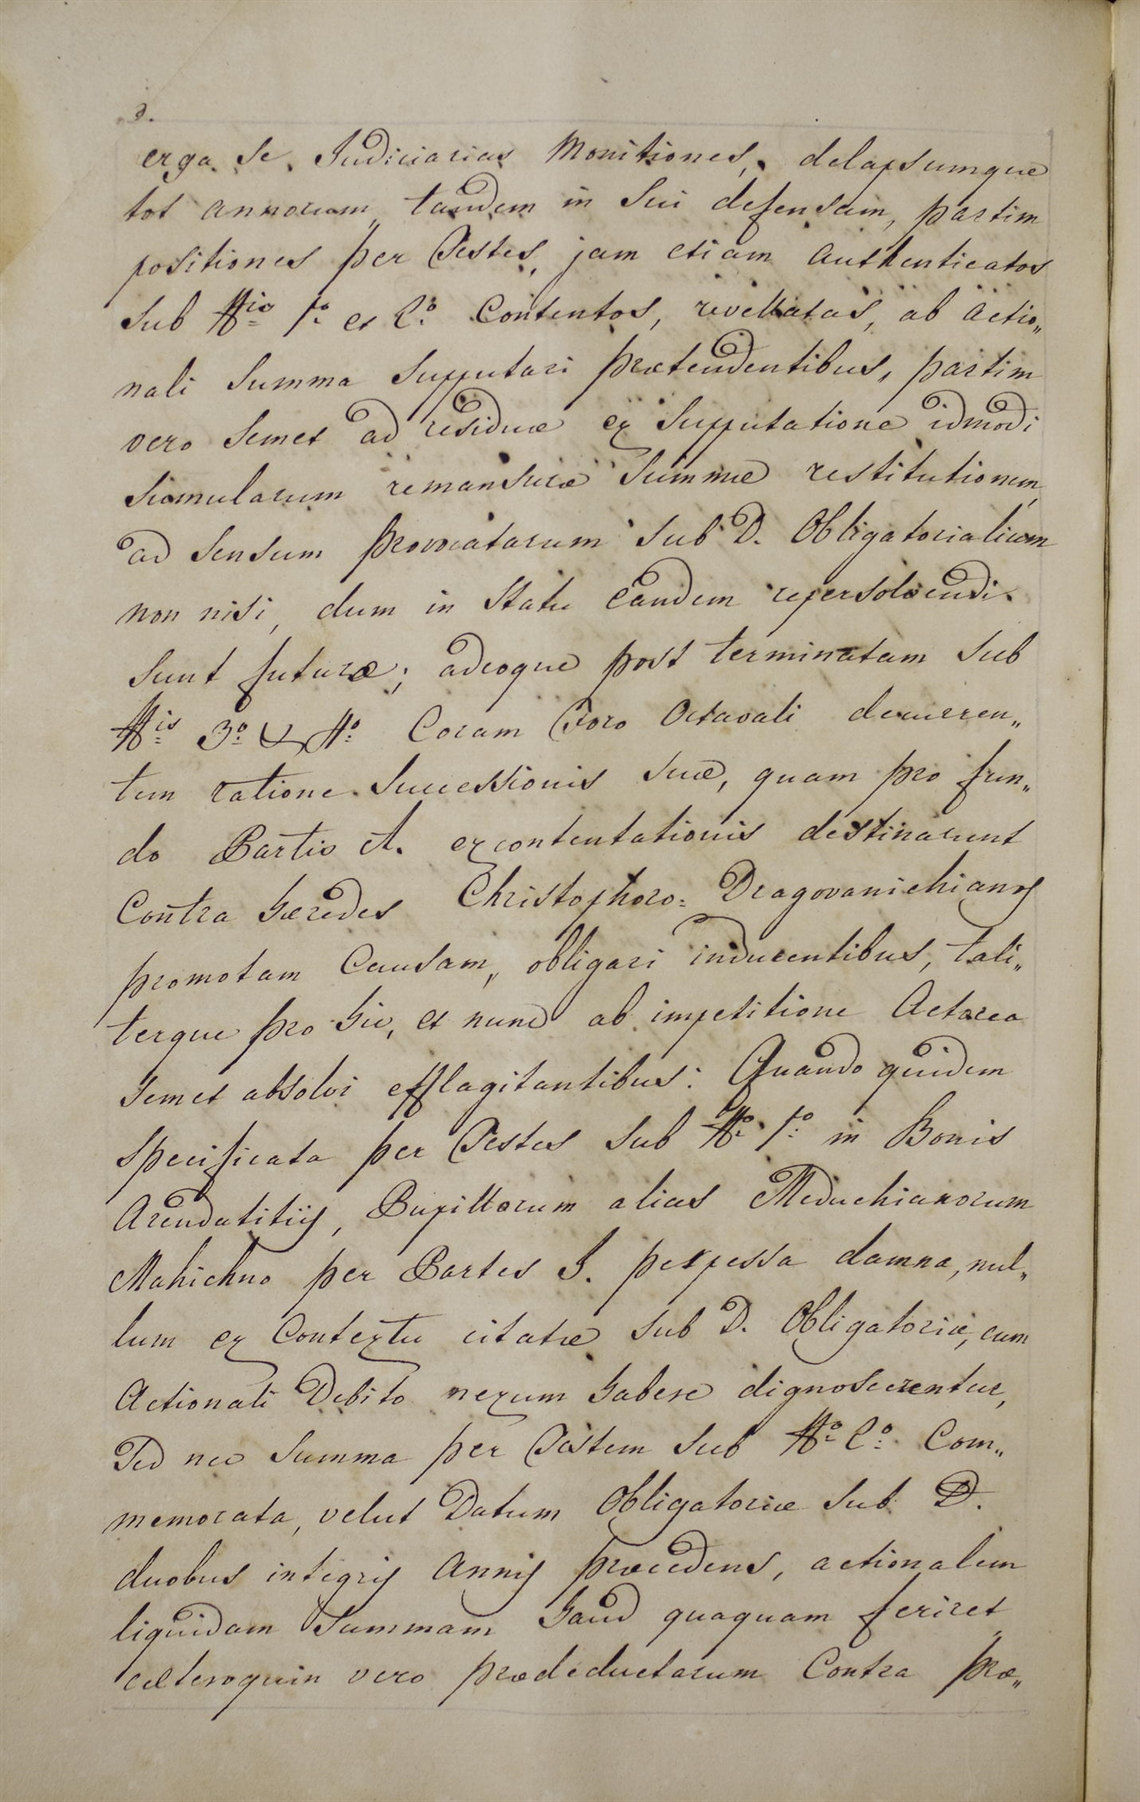 3.
erga se Judiciarias Monitiones, delapsumque
tot annorum, tandem in Sui defensam, partim
positiones per Testes, jam etiam Authenticatos
Sub Nio 1o et 2o Contentos, revellatas, ab Actio„
nali Summa Supputari praetendentibus, partim
vero Semet ad residuae ex Supputatione idmodi
Siamularum remansurae Summae restitutionem,
ad Sensum provocatarum Sub D. Obligatorialium
non nisi, dum in Statu Eandem repersolvendi
Sunt futurae; adeoque post terminatam Sub
Nis 3o & 4o Coram Foro Octavali decurren„
tem ratione Successionis Suae, quam pro fun„
do Partis A. excontentationis destinarunt
Contra Haeredes Christophoro= Dragovanichianos
promotam Causam, obligari inducentibus, tali„
terque pro hic, et nunc ab impetitione Actorea
Semet absolvi efflagitantibus: Quando quidem
Specificata per Testes Sub No 1o in Bonis
Arendatitiis, Pupillorum alias Meduchianorum
Mahichno per Partes I. perpessa damna, nul„
lum ex Contextu citatae Sub D. Obligatoriae, cum
Actionali Debito nexum habere dignoscerentur,
Sed nec Summa per Testem Sub No 2o Com„
memorata, velut Datum Obligatoriae Sub D.
duobus integris Annis praecedens, actionalem
liquidam Summam haud quaquam feriret,
caeteroquin vero praedeductarum Contra prae„